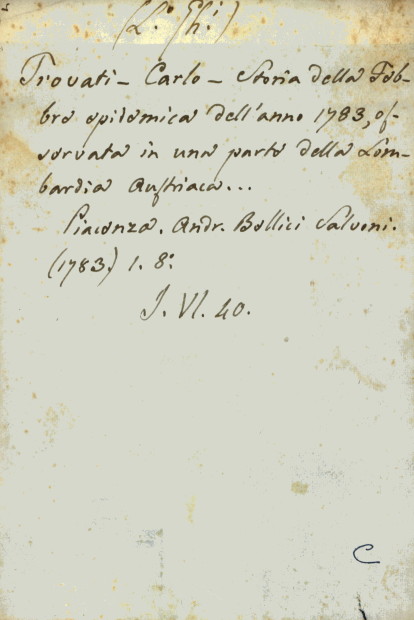 (L.° Gh.i)
Trovati - Carlo - Storia della Feb-
bre epidemica dell'anno 1783, of-
servata in una parte della Lom-
bardia Auſtriaca...
Piacenza. Andr. Bellici Salvoni.
(1783) 1. 8.°
J. VI. 40.
C